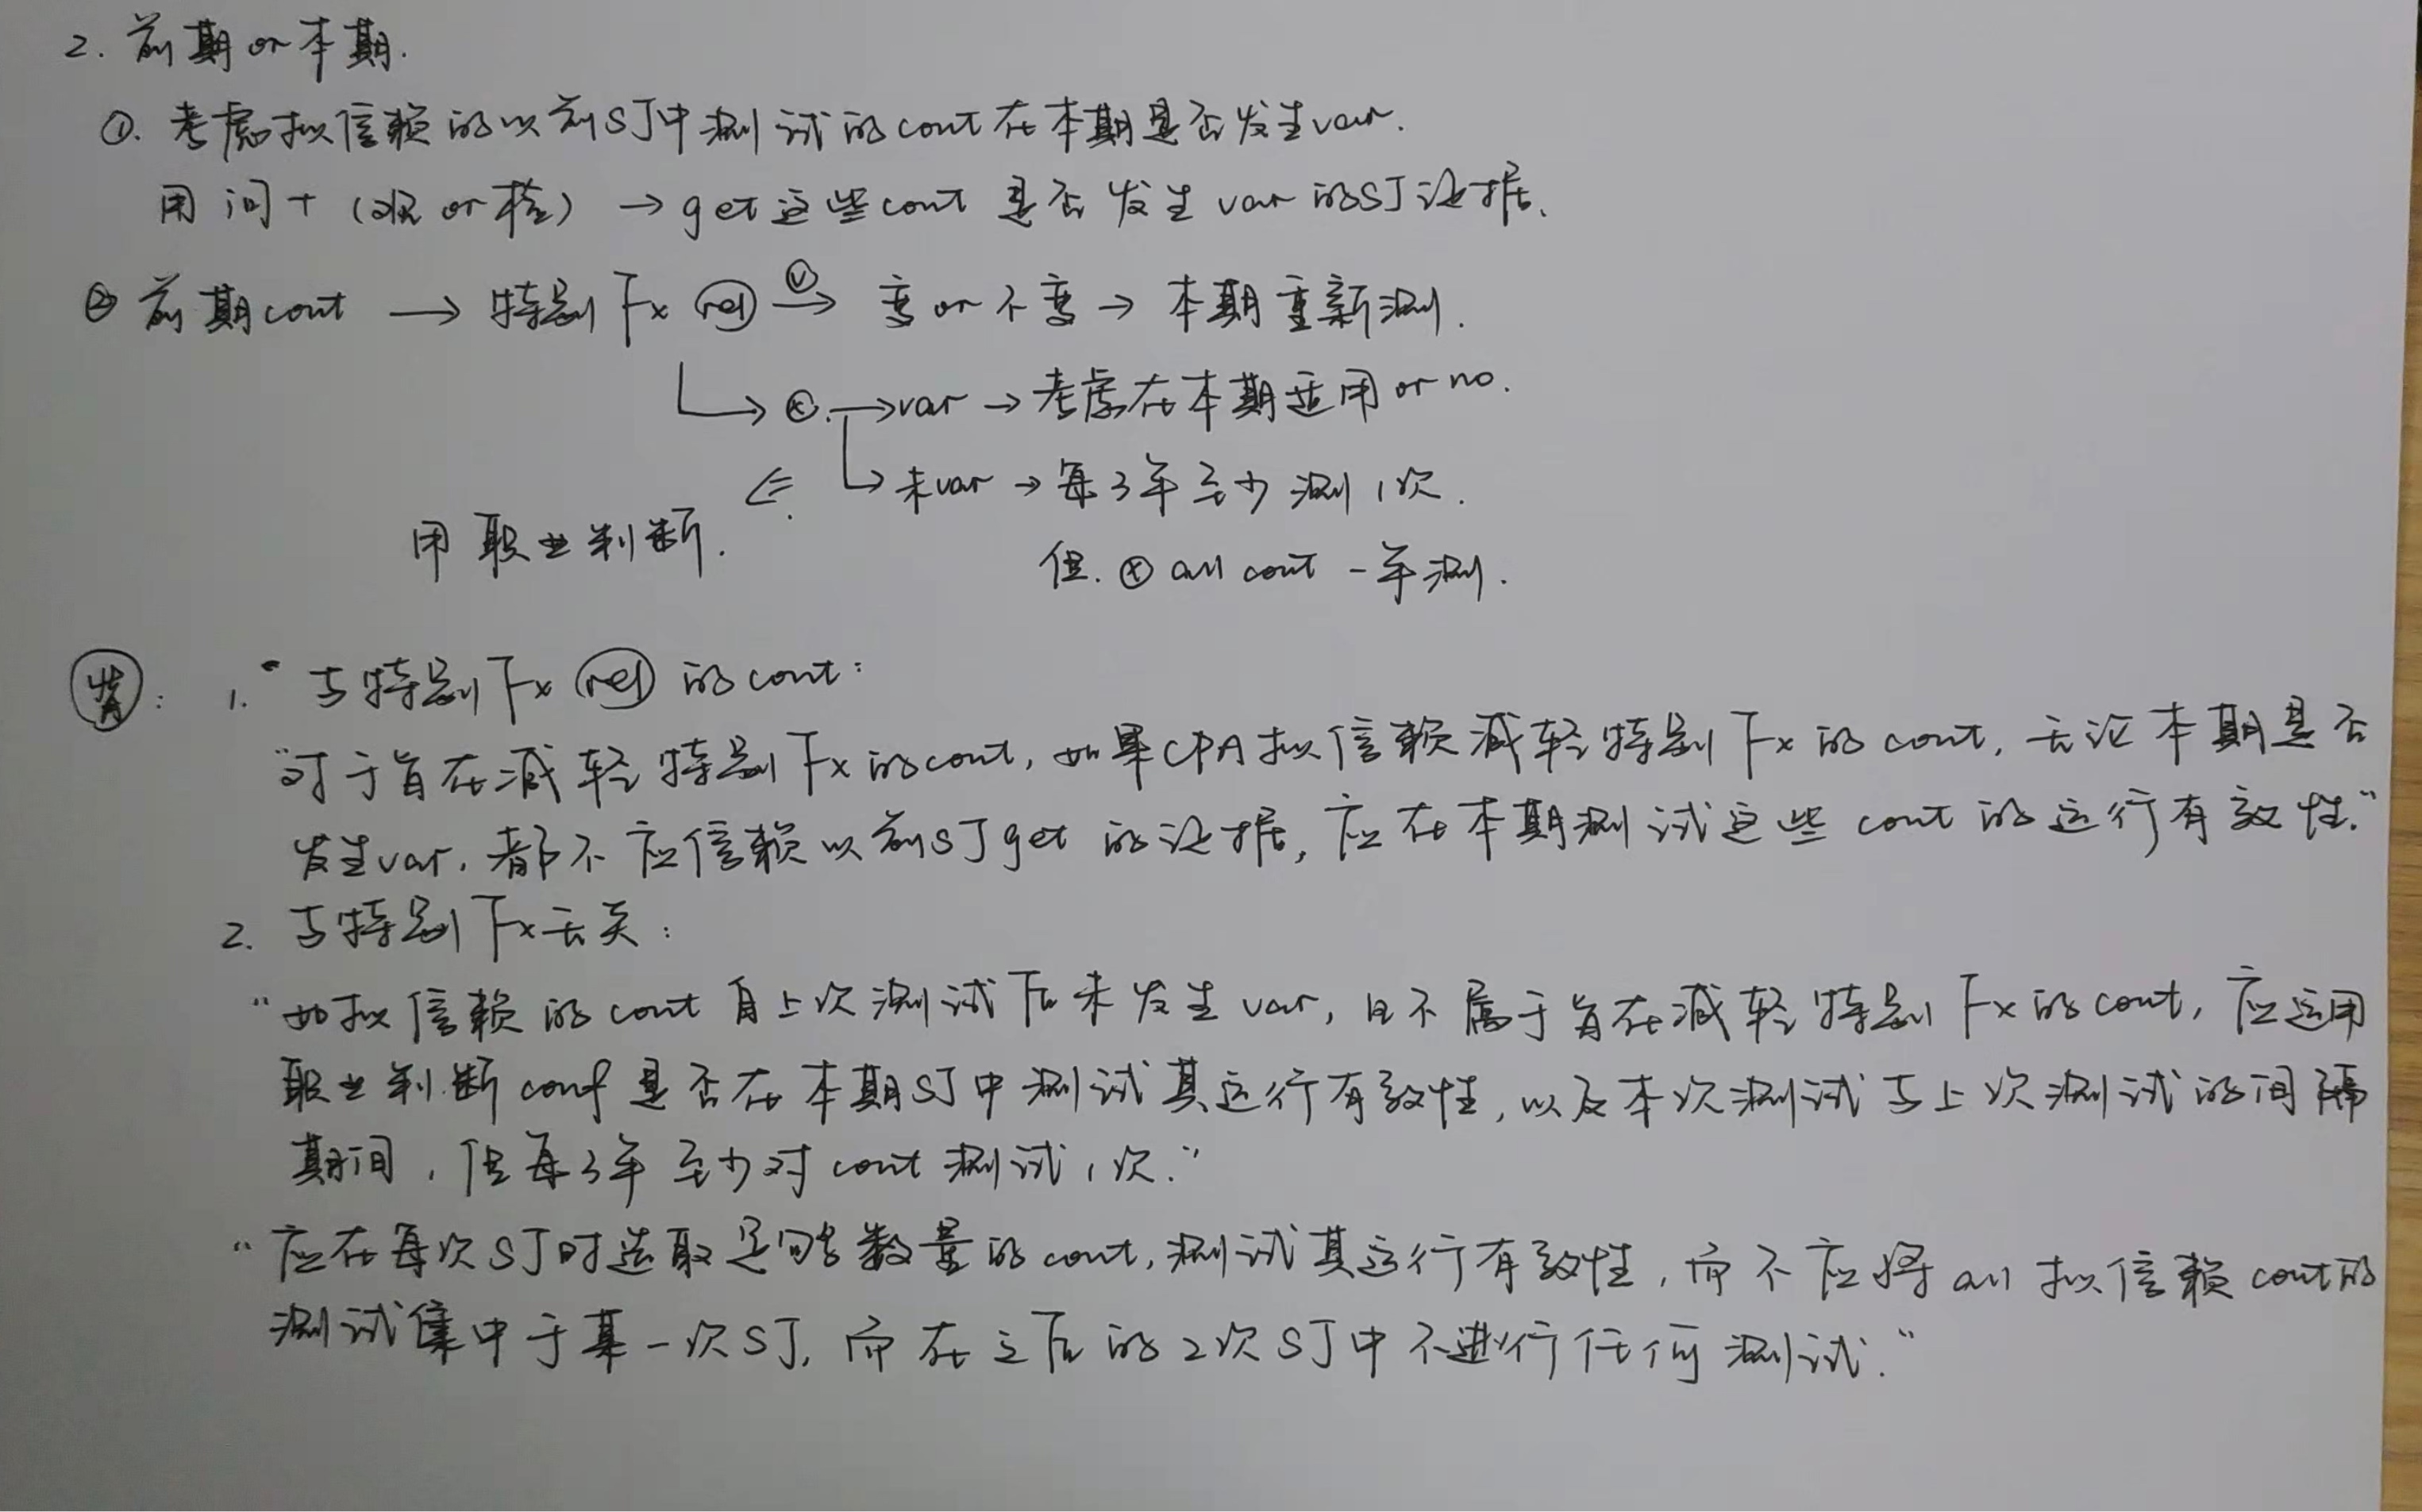 2. 前期 or 本期.
①. 考虑拟信赖的以前SJ中测试的cont在本期是否发生var.
用 问 + (观 or 检) → get 这些cont 是否 发生 var 的SJ证据.
② 前期cont → 特别Fx rel √→ 变 or 不变 → 本期重新测.
↳ ⓧ. → var → 考虑在本期适用 or no.
↳ 未var → 每3年至少测1次.
⇐ 用职业判断.
但. ⓧ all cont 一年测.
背: 1. 与特别Fx rel 的cont:
"对于旨在减轻特别Fx的cont, 如果CPA拟信赖减轻特别Fx的cont, 无论本期是否
发生var, 都不应信赖以前SJ get 的证据, 应在本期测试这些cont的运行有效性."
2. 与特别Fx无关:
"如拟信赖的cont自上次测试后未发生var, 且不属于旨在减轻特别Fx的cont, 应运用
职业判断conf是否在本期SJ中测试其运行有效性, 以及本次测试与上次测试的间隔
期间, 但每3年至少对cont测试1次."
"应在每次SJ时选取足够数量的cont, 测试其运行有效性, 而不应将all拟信赖cont的
测试集中于某一次SJ, 而在之后的2次SJ中不进行任何测试."